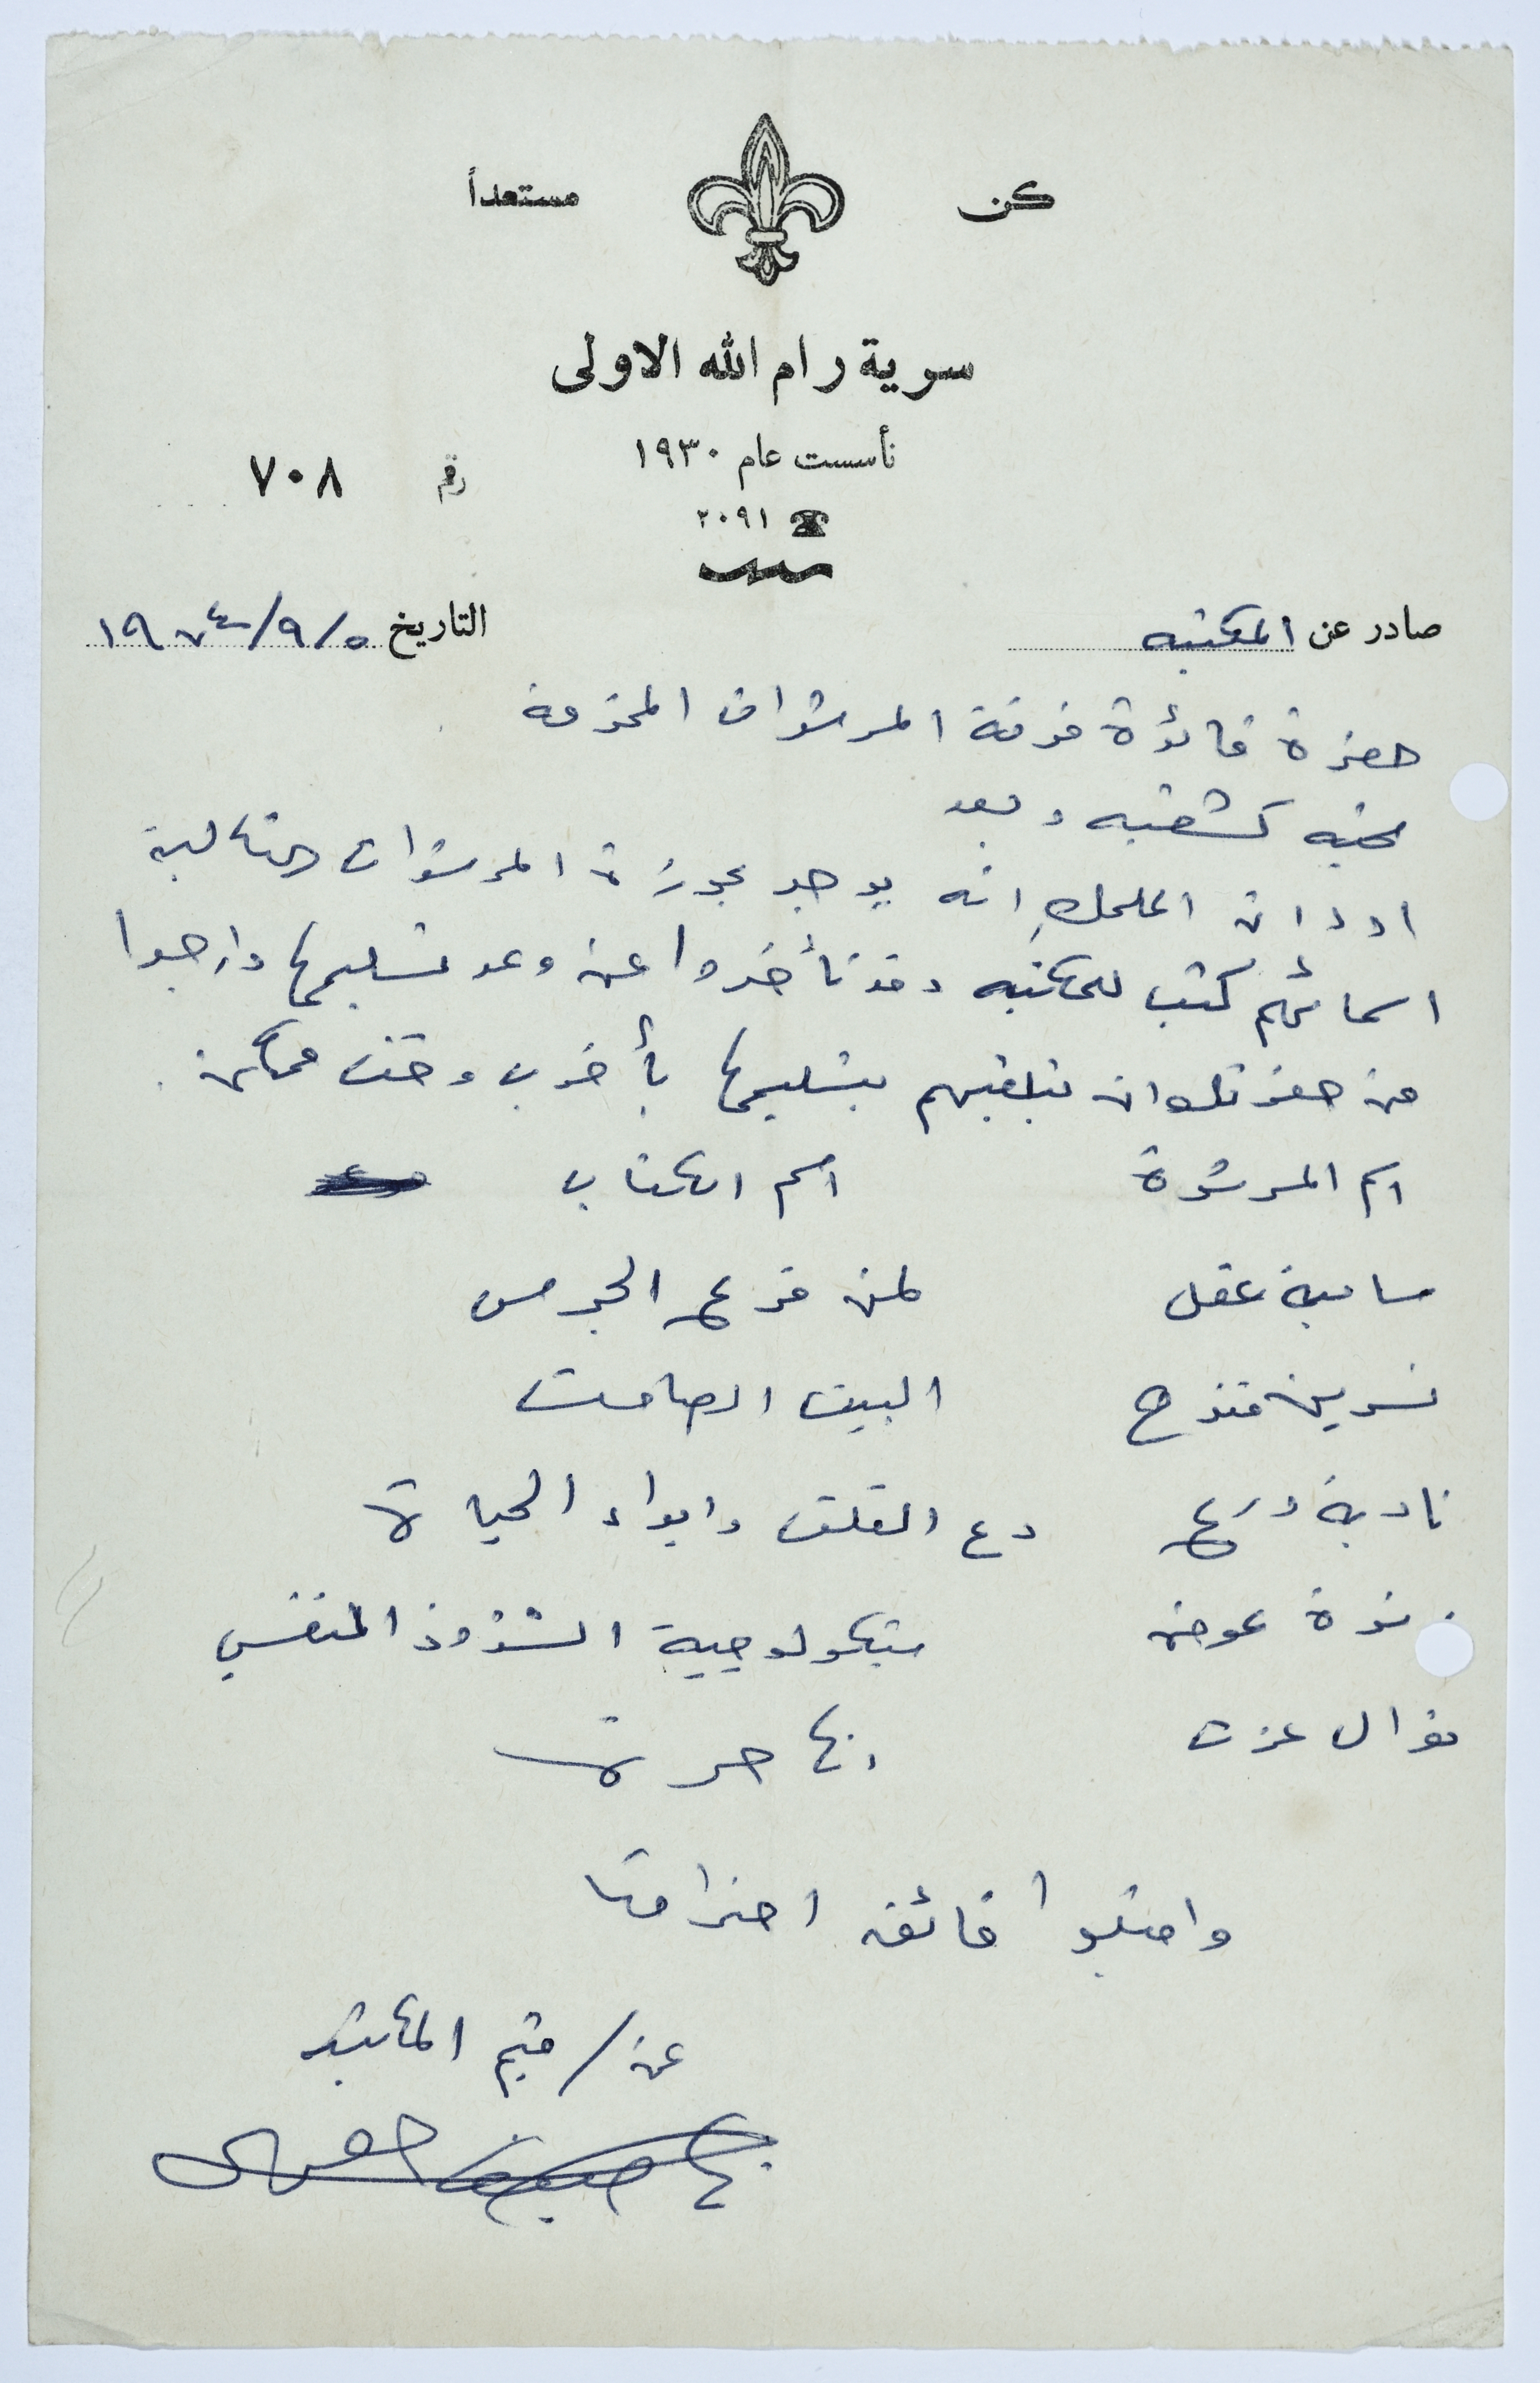 كن مستعداً
سرية رام الله الاولى
تأسست عام ١٩٣٠
رقم ٧٠٨
٢٠٩١
صادر عن المكتبه
التاريخ ٥/٩/١٩٧٤
حضرة قائدة فرقة المرشدات المحترمة
تحيه كشفيه وبعد
اود ان اعلمك انه يوجد بحوزة المرشدات التالية
اسمائهم كتب للمكتبه وقد تأخروا عن وعد تسليمها وارجوا
من حضرتك ان تبلغيهم بتسليمها بأقرب وقت ممكن .
اسم المرشدة اسم الكتاب
سامية عقل لمن تقرع الجرس
نسرين قندح البيت الصامت
نادية دع القلق وابداء الحياة
ندة عوض سيكولوجية الشذوذ النفسي
نوال عزت انها حرة
واقبلوا فائق احترامنا
عن / قيم المكتبة